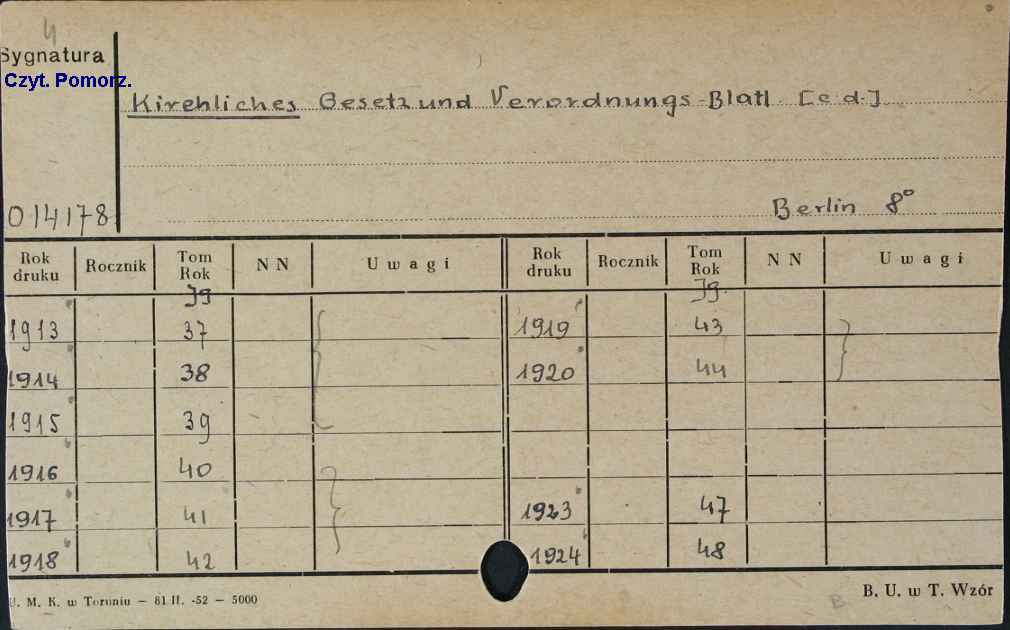 4
Sygnatura
Czyt. Pomorz.
Kirchliches Gesetz und Verordnungs-Blatt [c.d.]
014178
Berlin 8°
Rok druku Rocznik Tom Rok NN Uwagi Rok druku Rocznik Tom Rok NN Uwagi
Jg Jg.
1913 37 1919 43
1914 38 1920 44
1915 39
1916 40
1917 41 1923 47
1918 42 1924 48
U. M. K. w Toruniu — 81 II. -52 — 5000
B
B. U. w T. Wzór